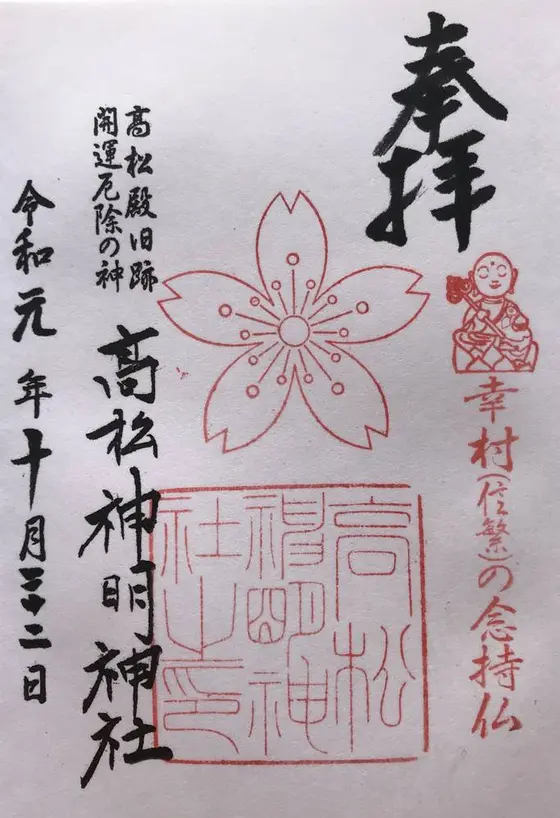 奉拝
幸村(信繁)の念持仏
高松殿旧跡
開運厄除の神
高松神明神社
令和元年十月二十二日
高松
神明神
社之印